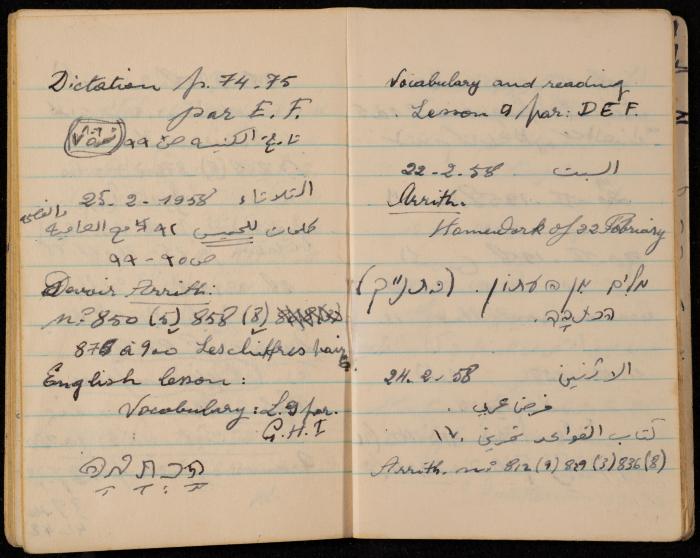 Dictation p. 74-75
par E. F.
تاريخ الكنيسة ص ٩٩
الثلاثاء 25-2-1958
كلمات للحميس ٩٢ مع العامية
ص ٩٥ - ٩٩
Devoir Arrith:
nº 850 (5) 858 (8)
876 à 900 Les chiffres pairs.
English lesson:
Vocabulary: L. 9 par.
G. H. I
Vocabulary and reading
Lesson 9 par: D E F.
السبت 22-2-58
Arrith.
Homework of 22 Febriary
מלים מן העתון. 
הכתבה.
الاثنين 24-2-58
فرض عربي.
كتاب القواعد تمرين ١٧
Arrith. nº 812 (9) 829 (3) 836 (8)